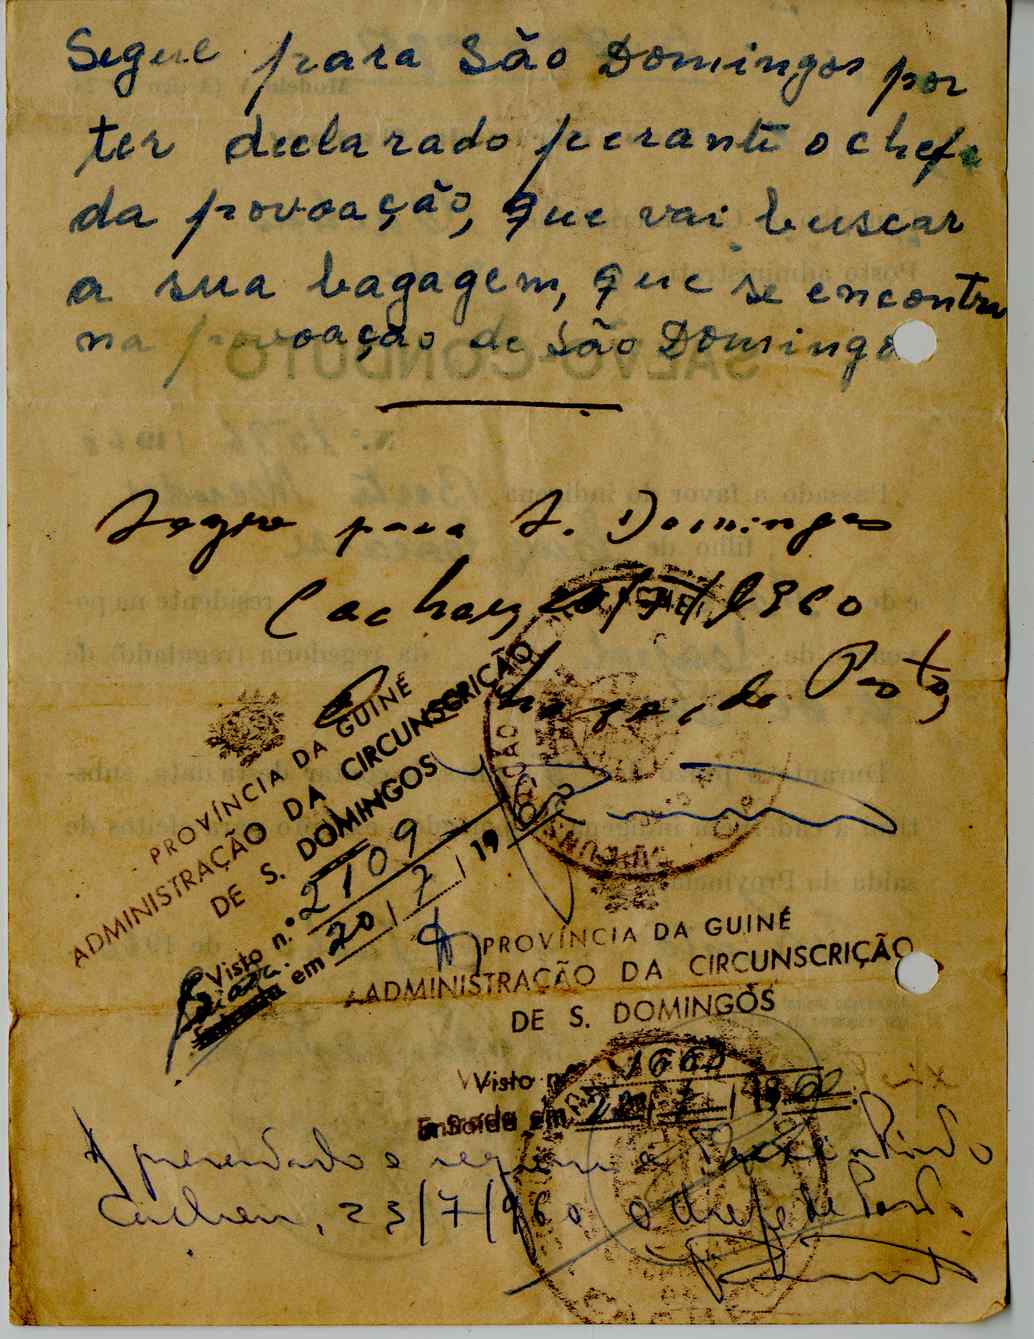 Segue para São Domingos por
ter declarado perante o chefe
da povoação, que vai buscar
a sua bagagem, que se encontra
na povoação de São Domingo
Segue para S. Domingos
Cacheu, /7/1960
Chefe de Posto,
PROVÍNCIA DA GUINÉ
ADMINISTRAÇÃO DA CIRCUNSCRIÇÃO
DE S. DOMINGOS
Visto n.º 2109
em 20/7/1960
PROVÍNCIA DA GUINÉ
ADMINISTRAÇÃO DA CIRCUNSCRIÇÃO
DE S. DOMINGOS
Visto n.º 1660
Saída em 22/7/1960.
Apresentado e
Cacheu, 23/7/960 O Chefe de Posto